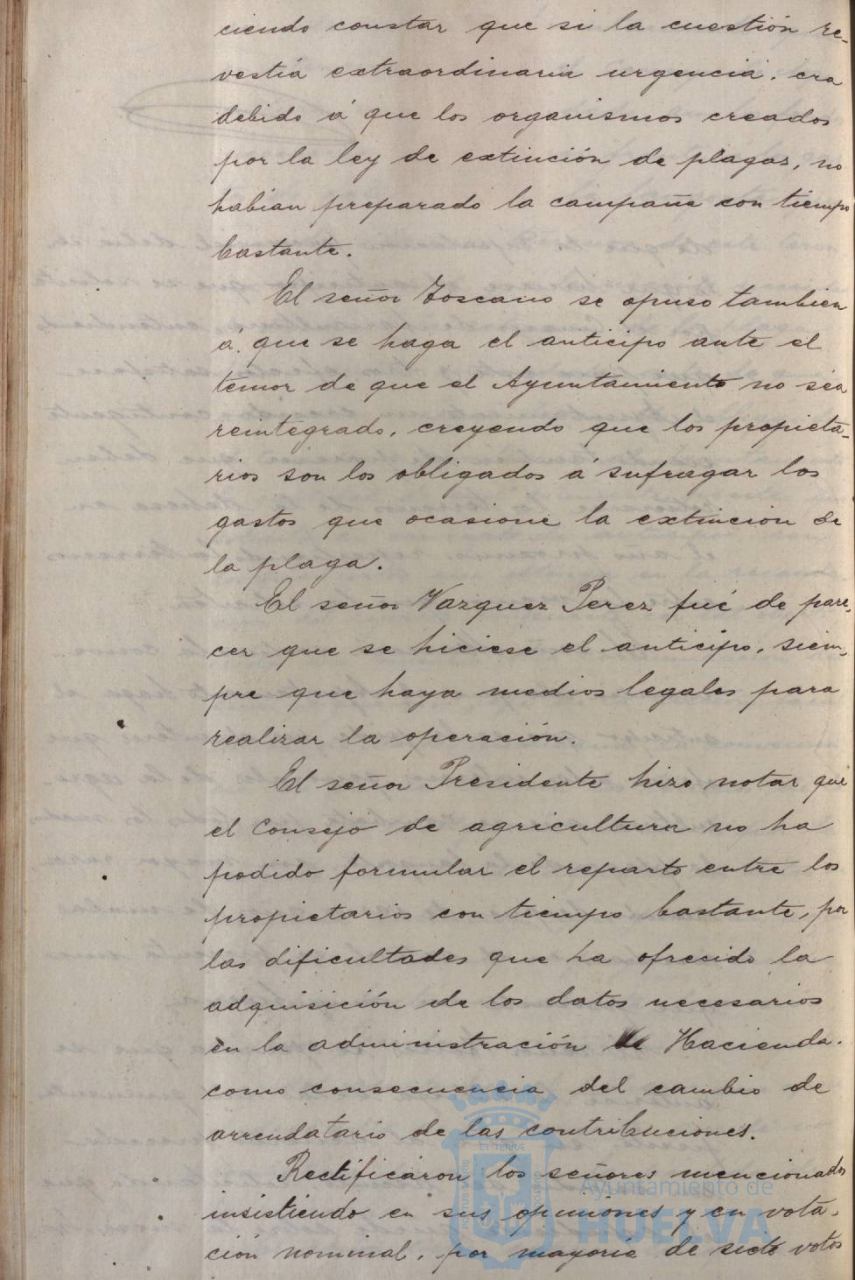 ciendo constar que si la cuestión re-
vestia extraordinaria urgencia, era
debido á que los organismos creados
por la ley de extinción de plagas, no
habian preparado la campaña con tiempo
bastante.
El señor Toscano se opuso tambien
á que se haga el anticipo ante el
temor de que el Ayuntamiento no sea
reintegrado, creyendo que los propieta-
rios son los obligados á sufragar los
gastos que ocasione la extinción de
la plaga.
El señor Vazquez Perez fué de pare-
cer que se hiciese el anticipo, siem-
pre que haya medios legales para
realizar la operación.
El señor Presidente hizo notar que
el Consejo de agricultura no ha
podido formular el reparto entre los
propietarios con tiempo bastante, por
las dificultades que ha ofrecido la
adquisición de los datos necesarios
en la administración de Hacienda,
como consecuencia del cambio de
arrendatario de las contribuciones.
Rectificaron los señores mencionados
insistiendo en sus opiniones y en vota-
ción nominal, por mayoria de siete votos
Ayuntamiento de
HUELVA